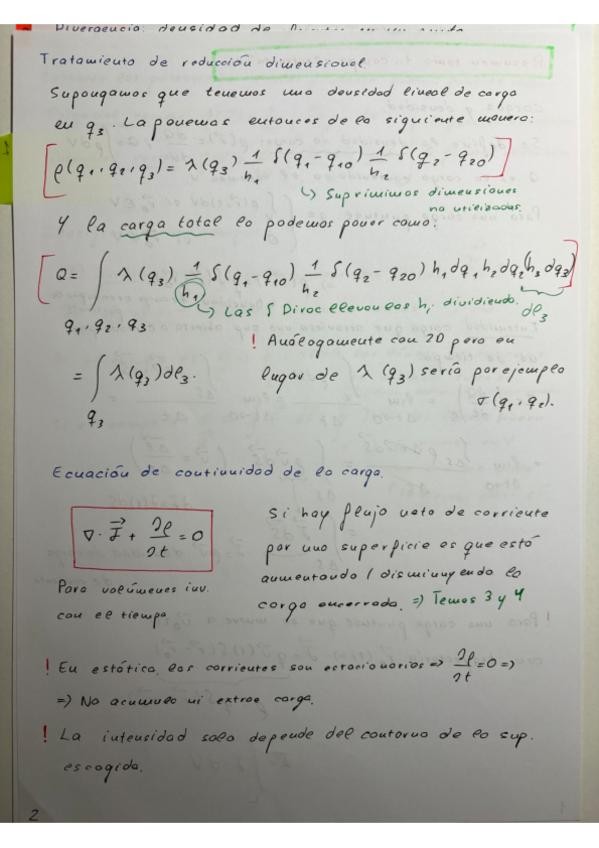 Divergencia: densidad de
Tratamiento de reducción dimensional.
Supongamos que tenemos una densidad lineal de carga
en q₃. La ponemos entonces de la siguiente manera:
ρ(q₁,q₂,q₃) = λ(q₃) 1/h₁ δ(q₁-q₁₀) 1/h₂ δ(q₂-q₂₀)
↳ Suprimimos dimensiones
no utilizadas.
Y la carga total la podemos poner como:
Q = ∫ λ(q₃) 1/h₁ δ(q₁-q₁₀) 1/h₂ δ(q₂-q₂₀) h₁dq₁ h₂dq₂ (h₃dq₃)
q₁,q₂,q₃
↳ Las δ Dirac llevan las hᵢ dividiendo.
dl₃
! Análogamente con 2D pero en
= ∫ λ(q₃)dl₃.
q₃
lugar de λ(q₃) sería por ejemplo
σ(q₁,q₂).
Ecuación de continuidad de la carga.
∇·J⃗ + ∂ρ/∂t = 0
Para volúmenes inv.
con el tiempo
Si hay flujo neto de corriente
por una superficie es que está
aumentando / disminuyendo la
carga encerrada. => Temas 3 y 4
! En estática, las corrientes son estacionarias => ∂ρ/∂t = 0 =>
=> No acumula ni extrae carga.
! La intensidad solo depende del contorno de la sup.
escogida.
2